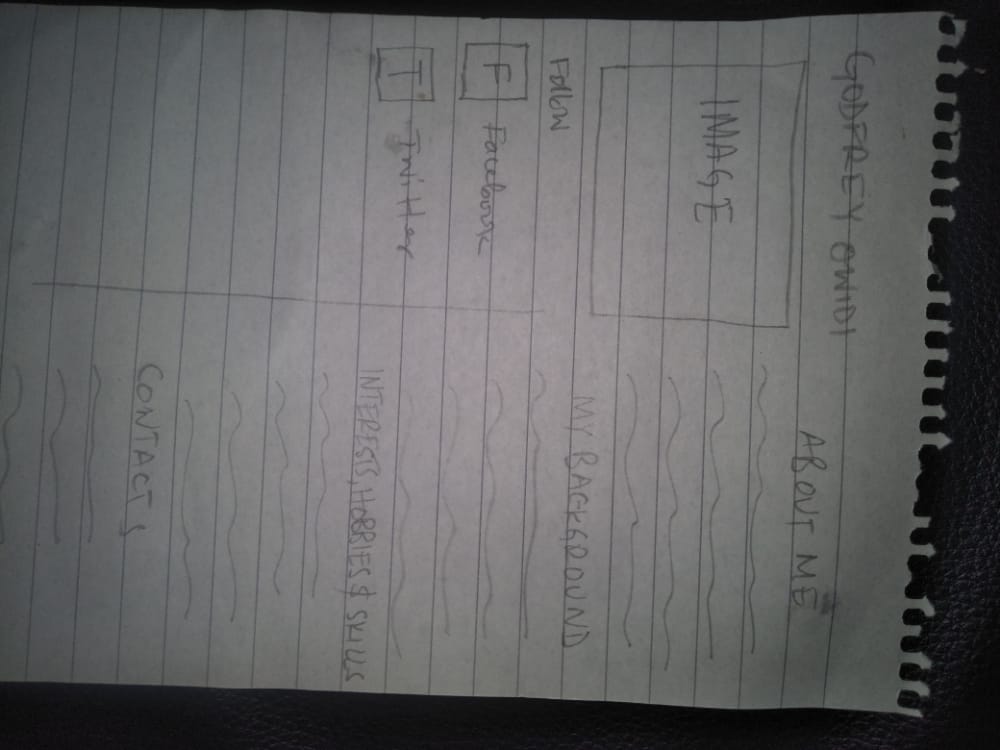 GODFREY OWIDI
IMAGE
Follow
F Facebook
T Twitter
ABOUT ME
MY BACKGROUND
INTERESTS, HOBBIES & SKILLS
CONTACTS